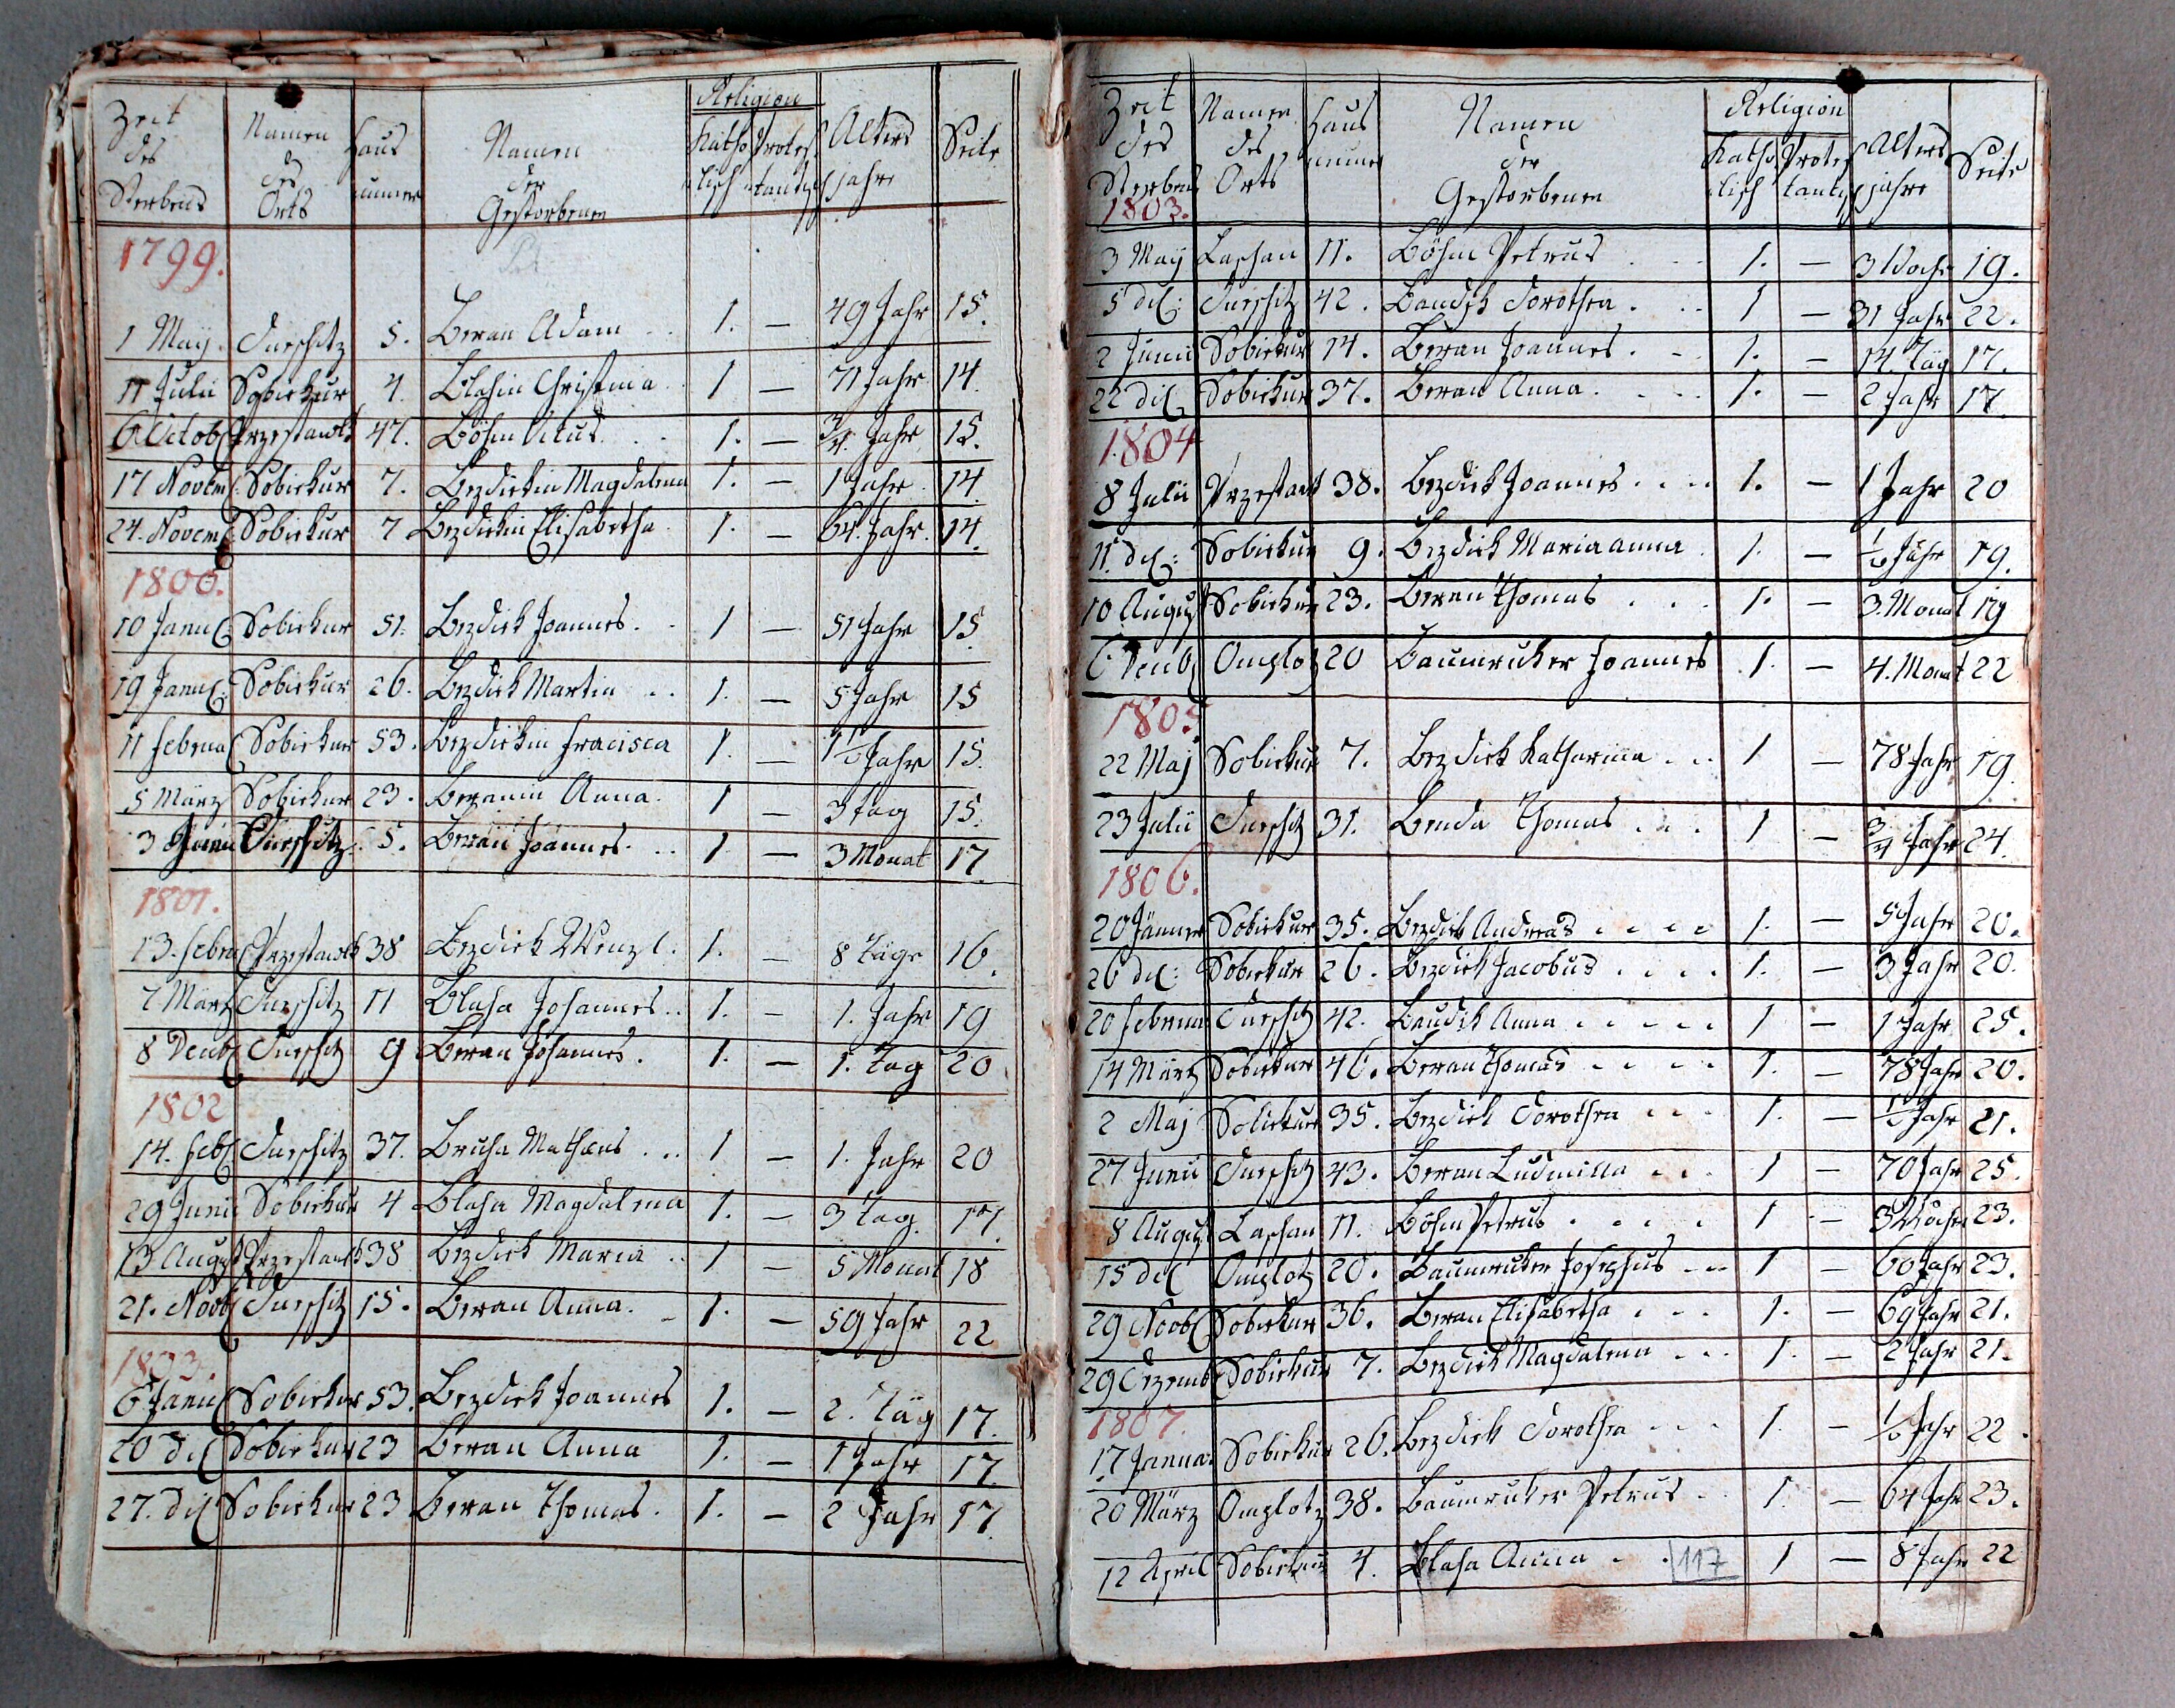 Zeit des Sterbens Namen des Orts Haus numer Namen der Gestorbenen Religion Katholisch Protestantisch Alters jahre Seite
1799.
1 Maÿ. Turschitz 5. Beran Adam 1. — 49 Jahr 15.
11 Julii Sobiekur 4. Blahin Christina 1 — 71 Jahr 14.
6 Octob Przestawlk 47. Böhm Vitus 1. — 3/4 Jahr 15.
17 Novem: Sobiekur 7. Bezdiekin Magdalena 1. — 1 Jahr 14.
24. Novem: Sobiekur 7 Bezdiekin Elisabetha 1. — 64. Jahr. 14.
1800.
10 Janu Sobiekur 51. Bezdiek Joannes 1 — 51 Jahr 15
19 Janu: Sobiekur 26. Bezdiek Martin 1. — 5 Jahr 15
11 Februa Sobiekur 53. Bezdiekin Fracisca 1. — 1 1/2 Jahr 15.
5 März Sobiekur 23. Beranin Anna. 1 — 3 tag 15.
3 Junii Turschitz 5. Beran Joannes 1 — 3 Monat 17.
1801.
13. Febru Przestawlk 38 Bezdiek Wenzl. 1. — 8 Täge 16.
7 März Turschitz 11 Blaha Johannes.. 1. — 1. Jahr 19
8 Xenb Turschitz 9 Beran Johannes. 1. — 1. Tag 20
1802
14. Feb Turschitz 37. Bruha Mathæus ... 1 — 1. Jahr 20
29 Junii Sobiekur 4 Blaha Magdalena 1. — 3 tag. 17.
13 August Przestawlk 38 Bezdiek Maria .. 1 — 5 Monat 18
21. Novb Turschitz 15. Beran Anna. 1. — 59 Jahr 22
1803.
6 Janu Sobiekur 53. Bezdiek Joannes 1. — 2. Täg 17.
20 det Sobiekur 23 Beran Anna 1. — 1 Jahr 17.
27. det Sobiekur 23 Beran Thomas. 1. — 2 Jahr 17.
Zeit des Sterbens Namen des Orts Haus numer Namen der Gestorbenen Religion Katholisch Protestantisch Alters jahre Seite
1803.
3 Maÿ Laschan 11. Böhm Petrus 1. — 3 Woche 19.
5 det: Turschitz 42. Baudisk Dorothea. 1 — 31 Jahr 22.
2 Junii Sobiekur 14. Beran Joannes. 1. — 14. Täg 17.
22 det Sobiekur 37. Beran Anna. 1. — 2 Jahr 17.
1804
8 Julii Przestawlk 38. Bezdiek Joannes .... 1. — 1 Jahr 20
11. det: Sobiekur 9. Bezdiek Mariaanna. 1. — 1/2 Jahr 19.
10 August Sobiekur 23. Beran Thomas 1. — 3. Monat 19
6 Xenb Omplotz 20 Baumruker Joannes 1. — 4. Monat 22
1805
22 Maj Sobiekur 7. Bezdiek Katharina ... 1 — 78 Jahr 19.
23 Julii Turschitz 31. Benda Thomas ... 1 — 3/4 Jahr 24.
1806.
20 Jänner Sobiekur 35. Bezdiek Andreas .... 1. — 5 Jahr 20.
26 det: Sobiekur 26. Bezdiek Jacobus .... 1. — 3 Jahr 20.
20 Februa Turschitz 42. Baudisk Anna ..... 1 — 1 Jahr 25.
14 März Sobiekur 46. Beran Thomas .... 1. — 78 Jahr 20.
2 Maj Sobiekur 35. Bezdiek Dorothea ... 1. — 1/2 Jahr 21.
27 Junii Turschitz 43. Beran Ludmilla ... 1 — 70 Jahr 25.
8 August Laschan 11. Böhm Petrus ..... 1 — 3 Wochen 23.
15 det Omplotz 20. Baumruker Josephus ... 1 — 60 Jahr 23.
29 Novb Sobiekur 36. Beran Elisabetha ... 1. — 69 Jahr 21.
29 Dezemb Sobiekur 7. Bezdiek Magdalena ... 1. — 2 Jahr 21.
1807.
17 Janua: Sobiekur 26. Bezdiek Dorothea ... 1. — 1/2 Jahr 22.
20 März Omplotz 38. Baumruker Petrus .. 1. — 64 Jahr 23.
12 April Sobiekur 4. Blaha Anna .. 117 1 — 8 Jahr 22